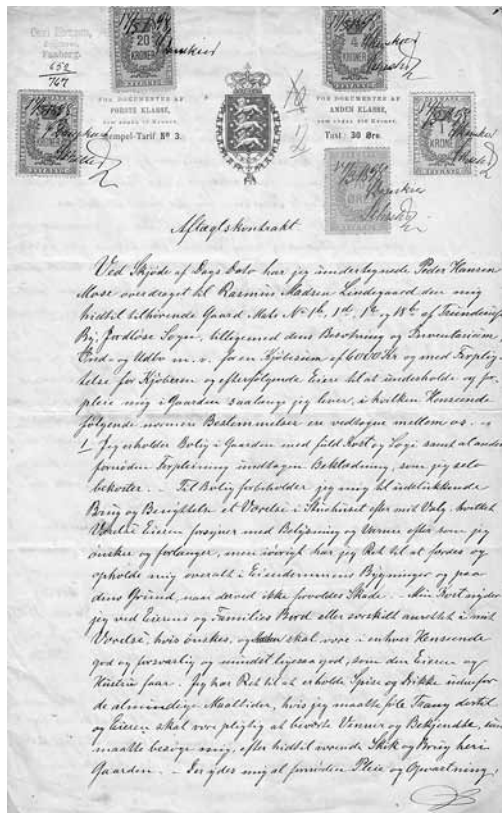 Carl
Faaborg.
652
767
20
KRONER
4
KRONER
1
KRONE
ØRE
FOR DOCUMENTER AF
FØRSTE KLASSE,
Stempel-Tarif No 3.
FOR DOCUMENTER AF
ANDEN KLASSE,
Taxt: 30 Øre.
Aftægtskontrakt.
Ved Skjøde af Dags Dato har jeg undertegnede Peder Hansen
Mose overdraget til Rasmus Madsen Lindegaard den mig
hidtil tilhørende Gaard Matr No 1b, 1d, 1e og 18b af
By, Jordløse Sogn, tilligemed dens Besætning og Inventarium,
Ind- og Udbo m. v. for en Kjøbesum af 6000 Kr og med Forplig-
telse for Kjøberen og efterfølgende Eiere til at underholde og for-
pleie mig i Gaarden saalænge jeg lever, i hvilken Henseende
følgende nærmere Bestemmelser ere vedtagne mellem os.
1 Jeg erholder Bolig i Gaarden med fuld Kost og Logi samt al anden
fornøden Forpleining undtagen Beklædning, som jeg selv
bekoster. - Til Bolig forbeholder jeg mig til udelukkende
Brug og Benyttelse et Værelse i Stuehuset efter mit Valg, hvilket
Værelse Eieren forsyner med Belysning og Varme efter som jeg
ønsker og forlanger, men iøvrigt har jeg Ret til at færdes og
opholde mig overalt i Eiendommens Bygninger og paa
dens Grund, naar derved ikke forvoldes Skade. - Min Kost nyder
jeg ved Eierens og Families Bord eller særskilt anrettet i mit
Værelse, hvis ønskes, og skal være i enhver Henseende
god og forsvarlig og mindst ligesaa god, som den Eieren og
Hustru faar. Jeg har Ret til at erholde Spise og Drikke udenfor
de almindelige Maaltider, hvis jeg maatte føle Trang dertil
og Eieren skal være pligtig at beværte Venner og Bekjendte, som
maatte besøge mig, efter hidtil værende Skik og Brug her i
Gaarden. - Der ydes mig al fornøden Pleie og Opvartning,